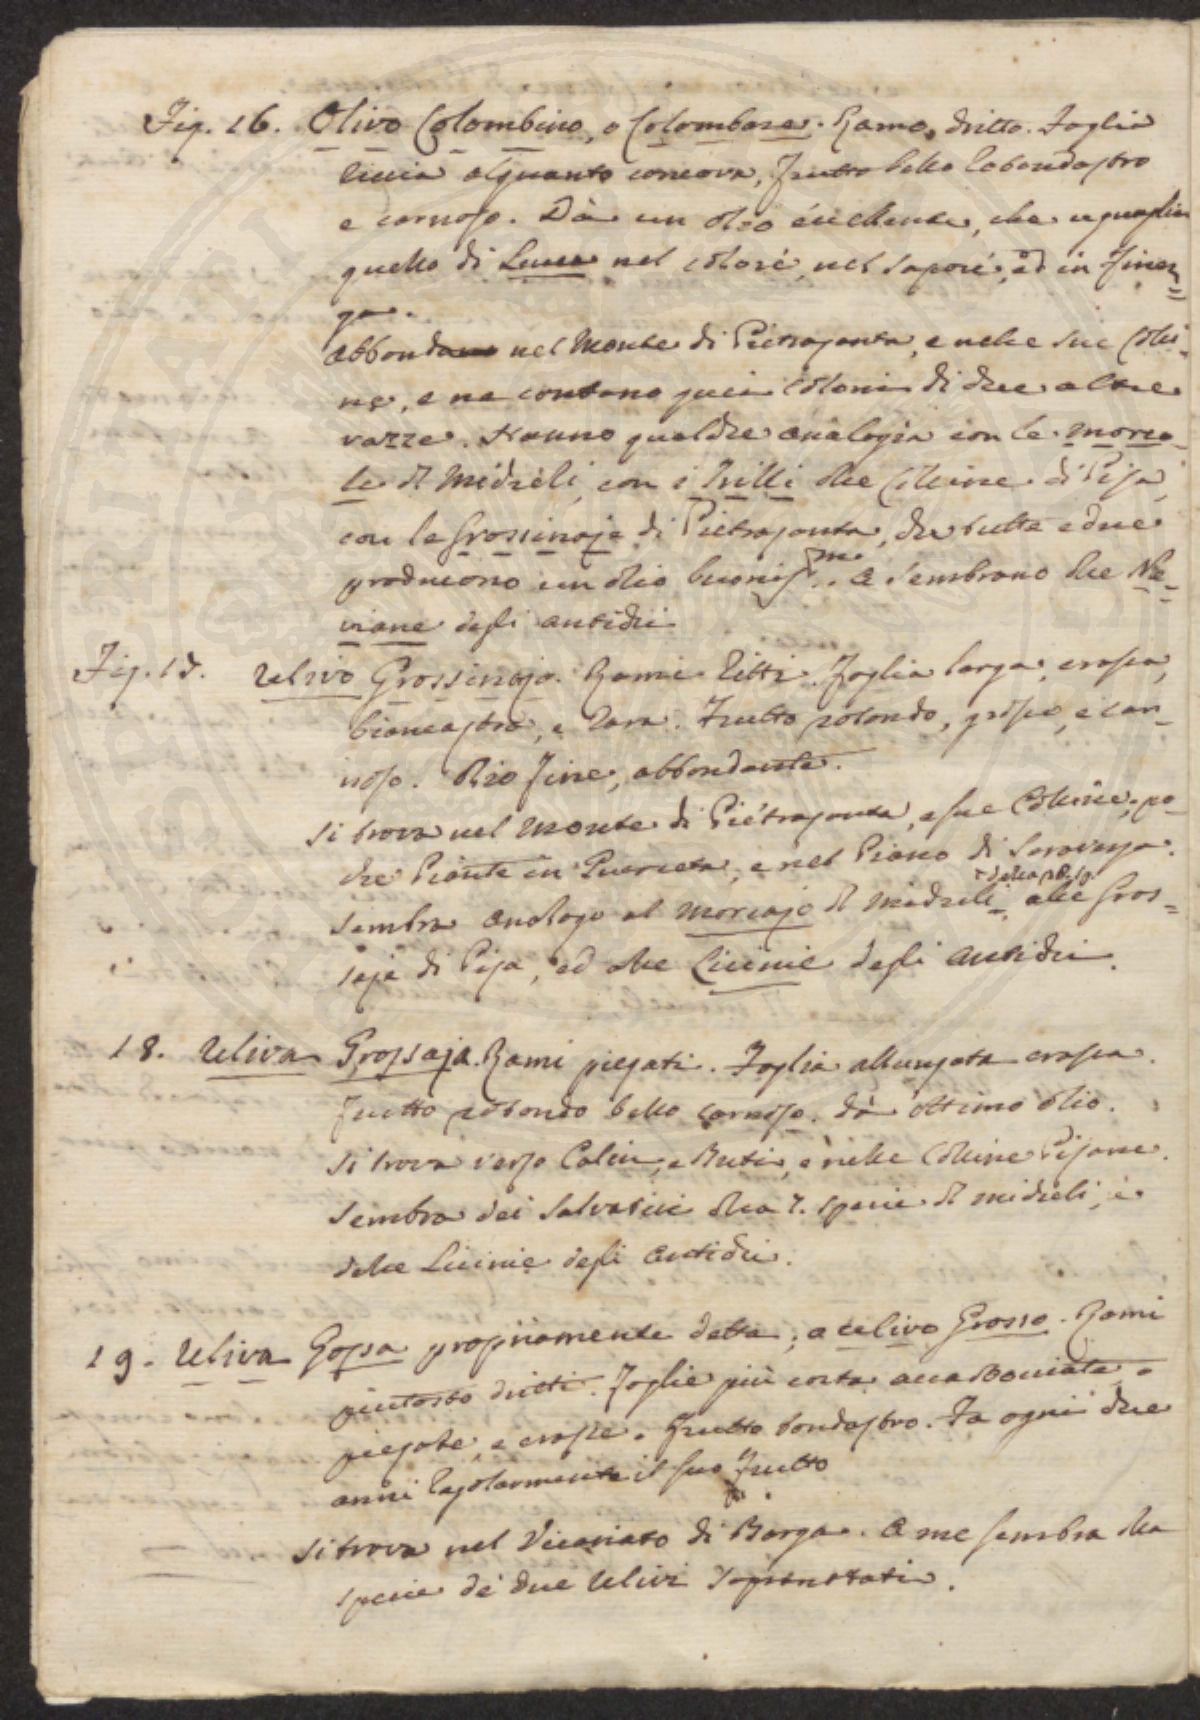 Fig. 16. Olivo Colombino, o Colombara. Ramo, dritto. Foglia
liscia alquanto concova, frutto bello
e carnoso. Dà un olio eccellente, che uguaglia
quello di Lucca nel colore, nel sapore, ed in finez=
za.
abbonda nel Monte di Pietrasanta, e nelle sue Colli=
ne, e ne contano quei Coloni di due altre
razze. Hanno qualche analogia con le morca=
le di Micheli, con i Trilli delle Colline di Pisa,
con le Grossinaje di Pietrasanta, che tutte e due
producono un olio buonissmo. e sembrano le
degli antichi
Fig. 17. Ulivo Grossinajo. Rami fitti. Foglia larga, crassa,
biancastra, e rara. Frutto rotondo, grosso, e car=
noso. Olio fine, abbondante.
si trova nel Monte di Pietrasanta, e sue Colline, po=
che Piante in Querceta, e nel Piano di Saravezza.
sembra analogo al morcajo di Micheli, alle Gros=
saje di Pisa, ed alle Licinie degli antichi.
18. Uliva Grossaja. Rami piegati. Foglia allungata crassa.
frutto rotondo bello carnoso. dà ottimo olio.
si trova verso Calci, e Buti, e nelle Colline Pisane.
sembra dei salvatici della 7. specie di micheli, e
delle Licinie degli antichi.
19. Uliva Gossa propriamente detta, o ulivo Grosso. Rami
piutosto dritti. Foglie più corte accartocciate, o
piegate, e crasse. Frutto tondastro. Fa ogni due
anni regolarmente il suo frutto
si trova nel Vicariato di Barga. a me sembra della
specie de due Ulivi sopracitati.